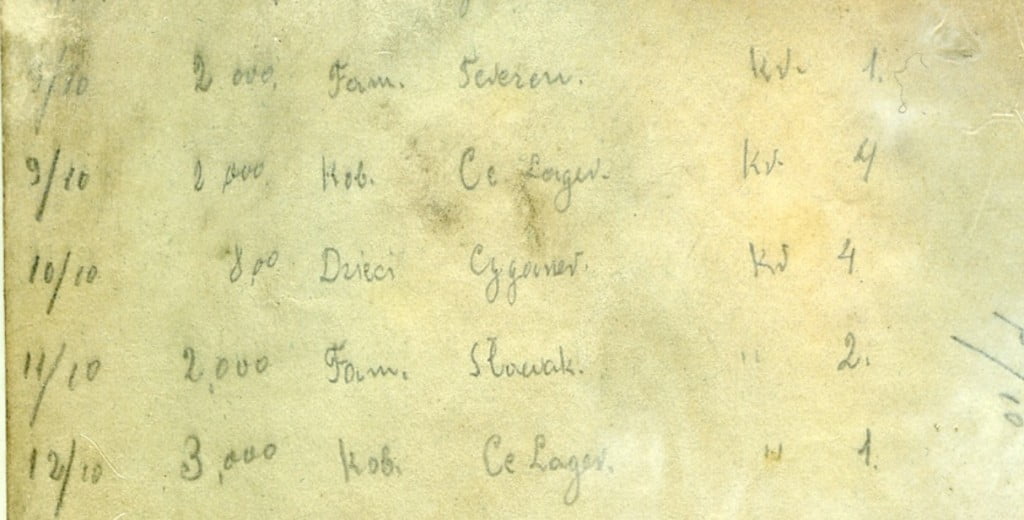 9/10 2 000. Fam. Teresen. Kr. 1.
9/10 2 000 Kob. Ce Lager. Kr. 4
10/10 8,00 Dzieci Cyganer. Kr 4
11/10 2,000 Fam. Słowak. " 2.
12/10 3,000 Kob. Ce Lager. " 1.